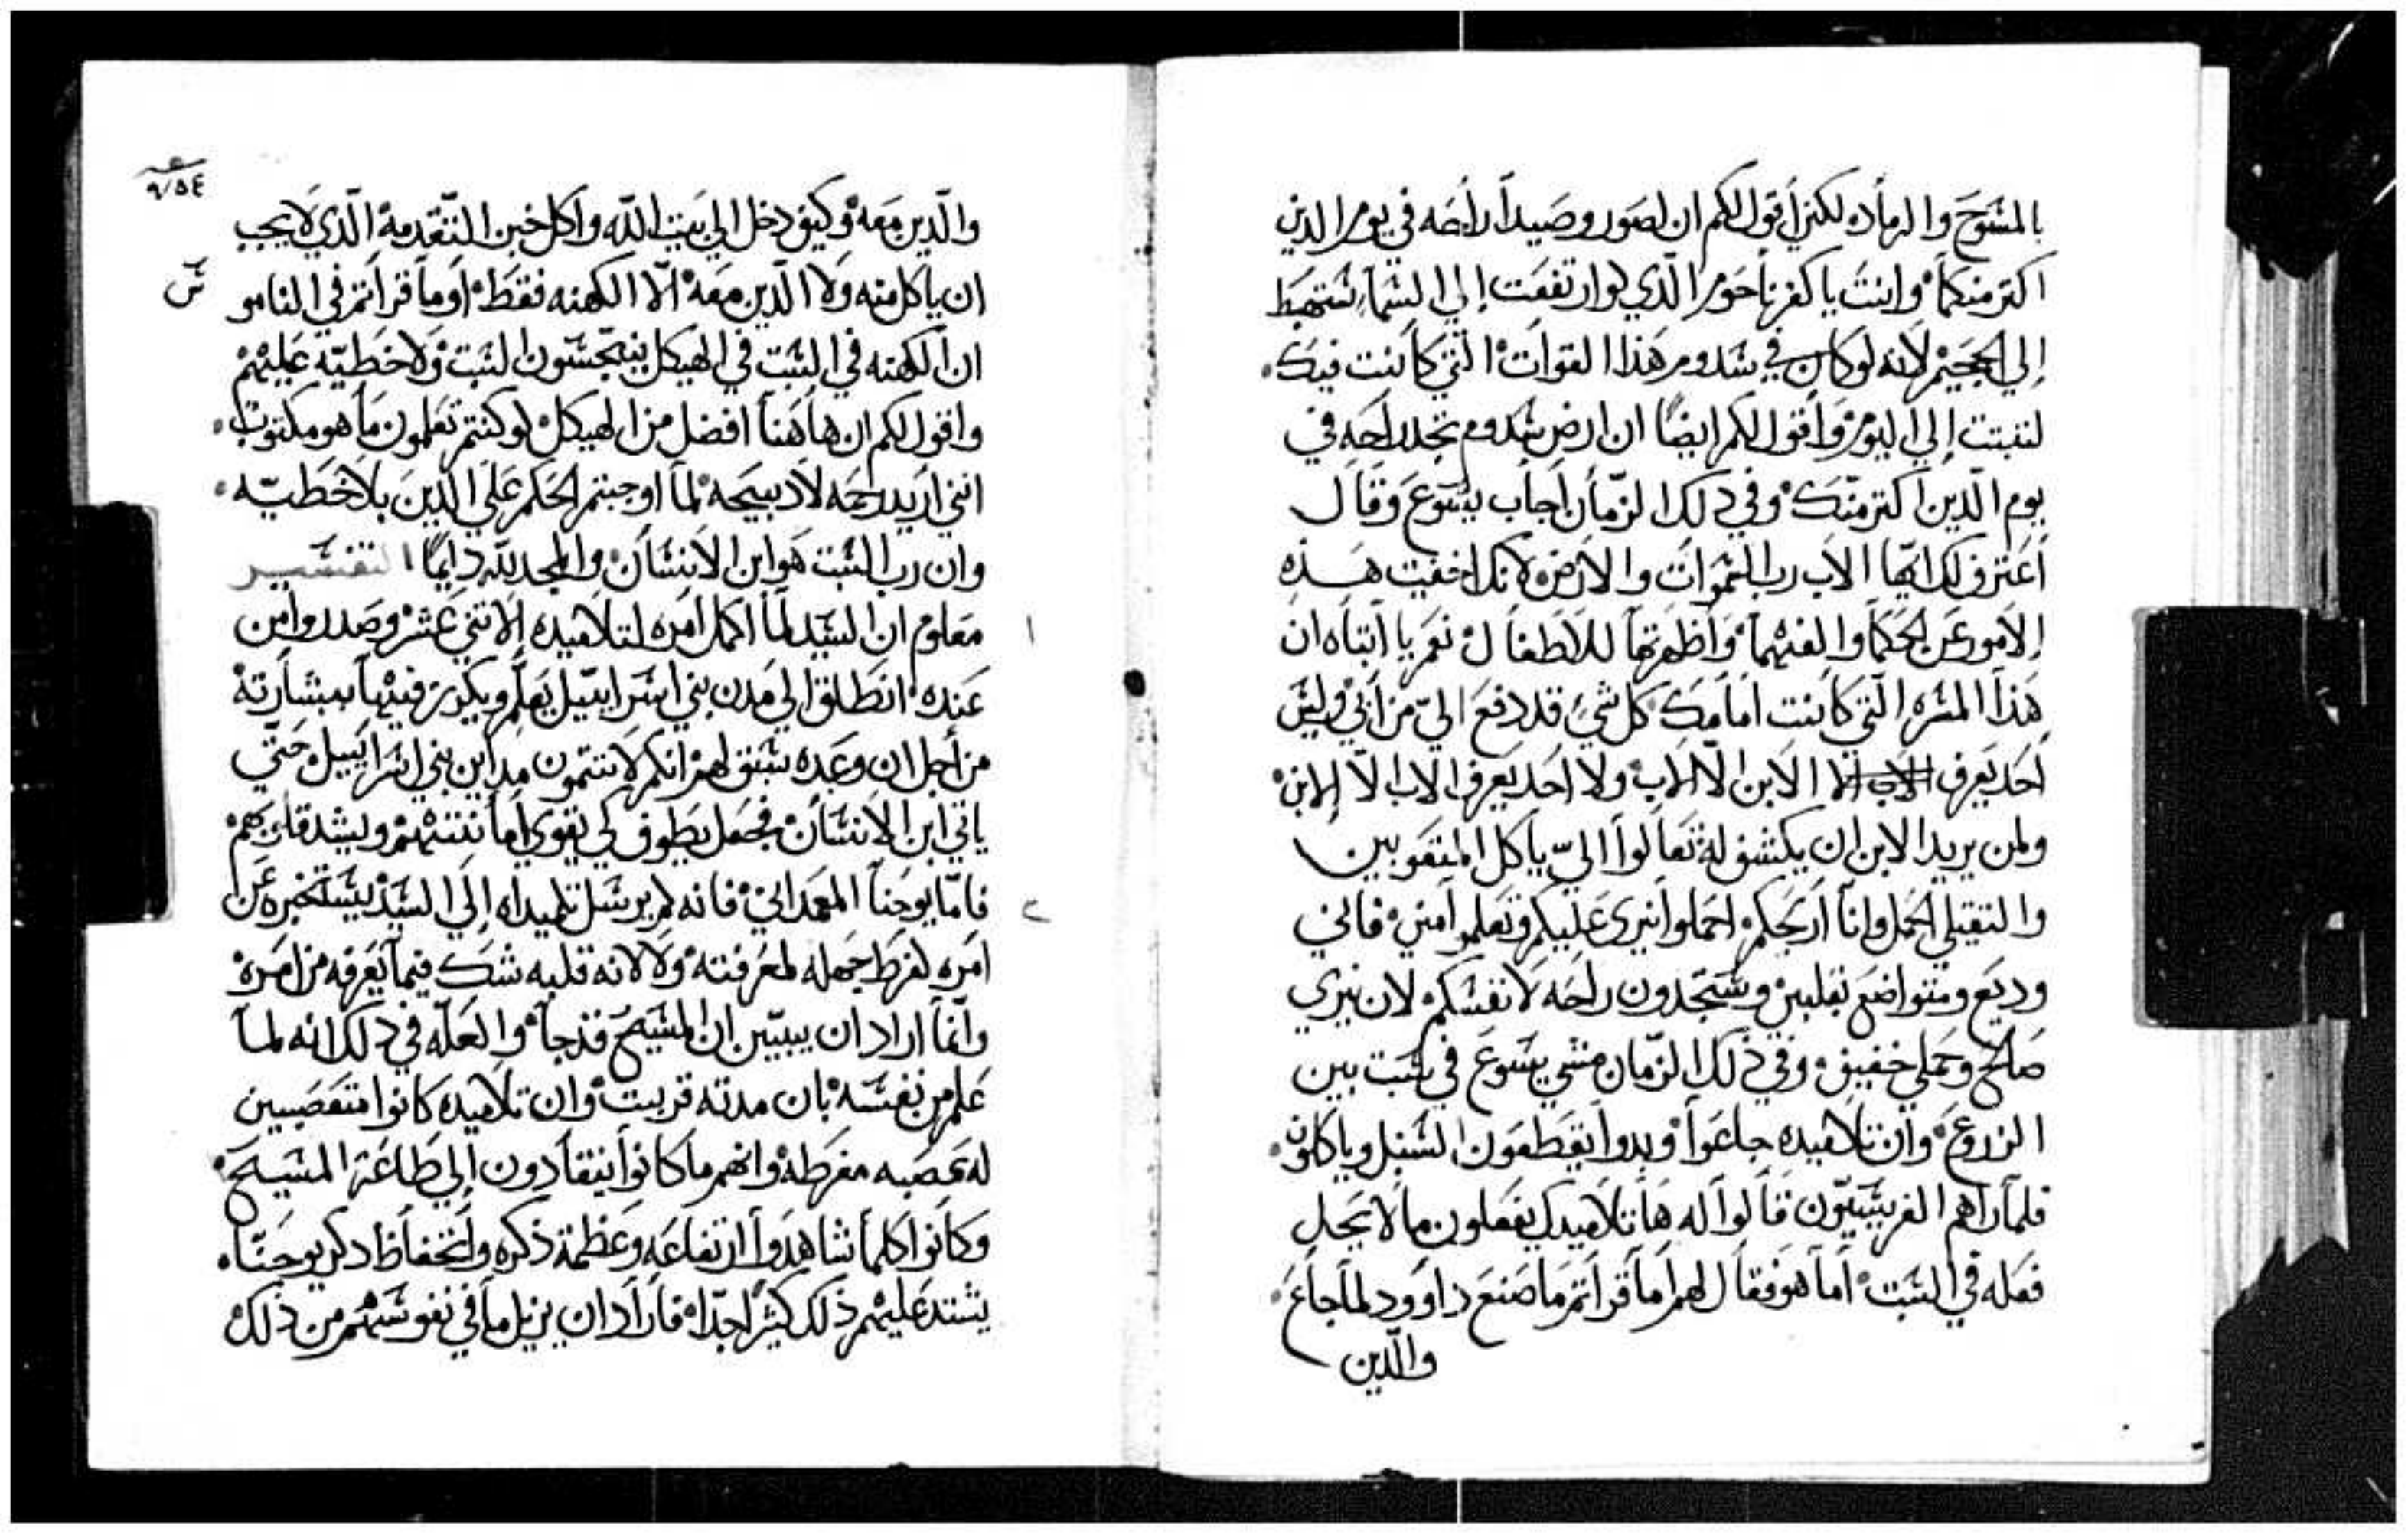 بالمسوح والرماد لكنى اقول لكم ان لصور وصيدا راحه في يوم الدين
اكتر منكما وانت يا كفرناحوم الذي لو ارتفعت إلي السما ستهبط
إلي الجحيم لانه لو كان في سدوم هذا القوات التي كانت فيك
لتبتت إلي اليوم واقول لكم ايضًا ان ارض سدوم تجد راحه في
يوم الدين اكتر منّك وفي ذلك الزمان اجاب يسوع وقال
أعترف لك ايها الاب رب السموات والارض لانك اخفيت هذه
الامور عن الحكما والفهما واظهرتها للاطفال نعم يا ابتاه ان
هذا المسره التي كانت امامك كل شيء قد دفع اليّ من أبي وليس
احد يعرف الابن الّا الاب ولا احد يعرف الاب الّا الابن
ولمن يريد الابن ان يكشف له تعالوا اليّ يا كل المتعوبين
والتقيلي الحمل وانا اريحكم احملوا نيري عليكم وتعلموا مني فاني
وديع ومتواضع بقلبي وستجدون راحه لانفسكم لان نيري
صالح وحملي خفيف وفي ذلك الزمان مشي يسوع في سبت بين
الزروع وان تلاميده جاعوا وبدوا يقطعون السنبل وياكلون
فلما راهم الفريسيّون قالوا له ها تلاميدك يفعلون ما لا يحل
فعله في السبت أما هو فقال لهم أما قراتم ما صنع داوود لما جاع
والّدين
٩/٥٤
والّدين معه وكيف دخل الي بيت الله وأكل خبز التّقدمة الّذي لا يجب
ان ياكل منه ولا الّذين معه الّا الكهنه فقط أو ما قراتم في النامو
س
ان الكهنه في السبت في الهيكل ينجّسون السبت ولا خطيّة عليهم
واقول لكم ان هاهنا افضل من الهيكل لو كنتم تعلمون ما هو مكتوب
انني اريد رحمه لا دبيحه لما اوجبتم الحكم علي الّدين بلا خطيّه
وان رب السبت هو ابن الانسان والمجد لله دايمًا التفسير
١
معلوم ان السيد لما اكمل امره لتلاميده الاتني عشر وصدروا من
عنده انطلق الي مدن بني اسراييل يعلم ويكرز فيها ببشارته
من أجل ان وعده سبق لهم انكم لا تتمون مداين بني اسراييل حتّي
ياتي ابن الانسان فجعل يطوف لكي يقوي أمانتهم ويشد قلوبهم
٢
فامّا يوحنا المعمداني فانه لم يرسل تلميداه إلي السيد يستخبره عن
امره لفرط جهله لمعرفته ولا لانه قلبه شك فيما يعرفه من امره
وانّما اراد ان يبيّن ان المسيح قد جا والعلّه في ذلك انه لما
علم من نفسه بان مدته قربت وان تلاميده كانوا متعصبين
له عصبه مفرطه وانهم ما كانوا ينقادون إلي طاعة المسيح
وكانوا كلما شاهدوا ارتفاعه وعظمة ذكره وانخفاظ دكر يوحنّا
يشتد عليهم ذلك كثيرًا جدّا فأراد ان يزيل ما في نفوسهم من ذلك